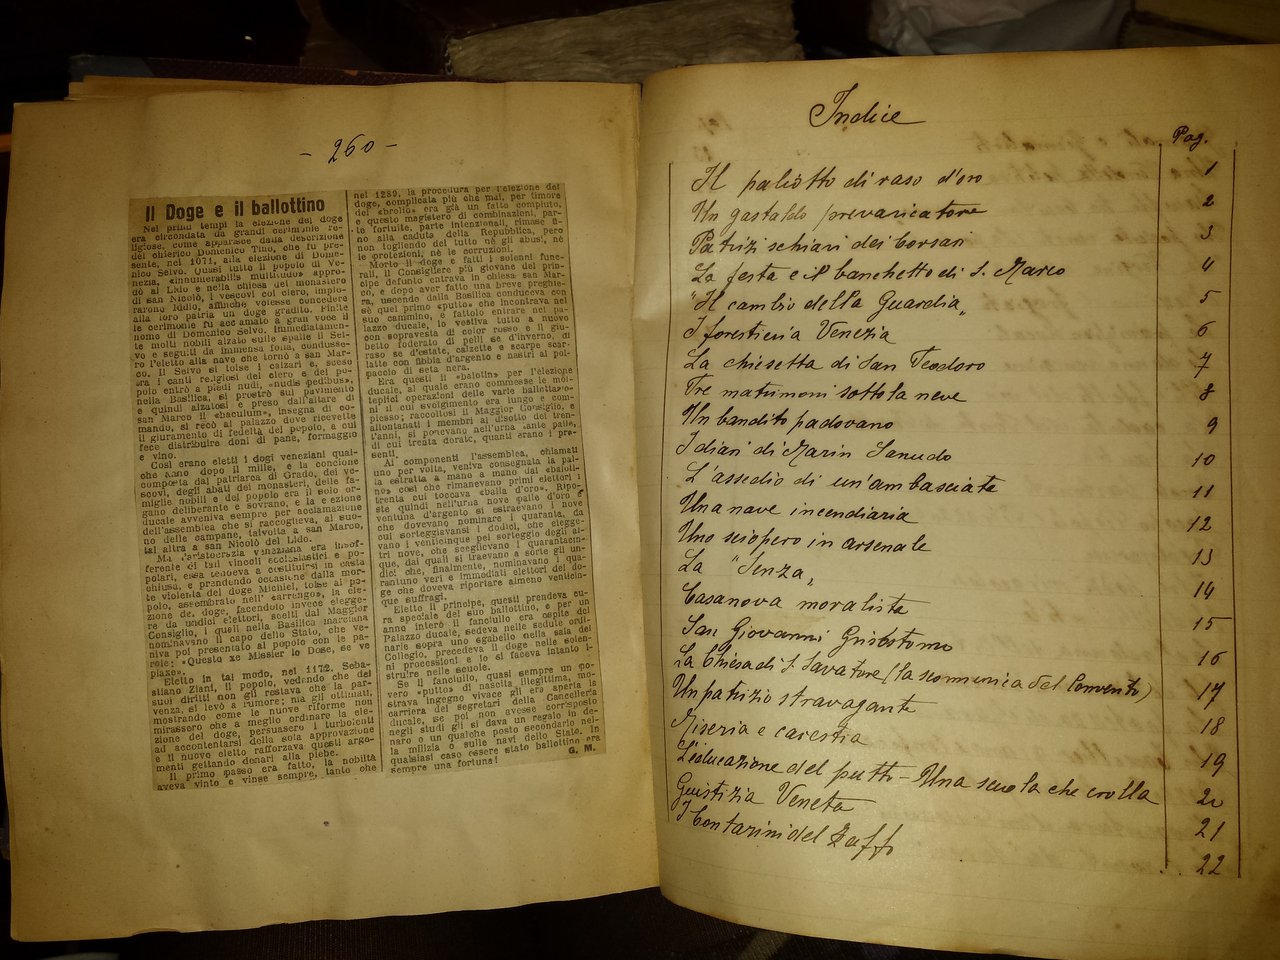 - 260 -
Il Doge e il ballottino
Nei primi tempi la elezione del doge
era circondata da grandi cerimonie re-
ligiose, come apparisce dalla descrizione
del chierico Domenico Tino, che fu pre-
sente, nel 1071, alla elezione di Dome-
nico Selvo. Quasi tutto il popolo di Ve-
nezia, «innumerabilis multitudo» appro-
dò al Lido e nella chiesa del monastero
di san Nicolò, i vescovi col clero, implo-
rarono Iddio, affinchè volesse concedere
alla loro patria un doge gradito. Finite
le cerimonie fu acclamato a gran voce il
nome di Domenico Selvo. Immediatamen-
te molti nobili alzato sulle spalle il Sel-
vo e seguiti da immensa folla, condusse-
ro l'eletto alla nave che tornò a san Mar-
co. Il Selvo si tolse i calzari e, sceso
tra i canti religiosi del clero e del po-
polo entrò a piedi nudi, «nudis pedibus»,
nella Basilica, si prostrò sul pavimento
e quindi alzatosi e preso dall'altare di
san Marco il «baculum», insegna di co-
mando, si recò al palazzo dove ricevette
il giuramento di fedeltà del popolo, a cui
fece distribuire doni di pane, formaggio
e vino.
Così erano eletti i dogi veneziani qual-
che anno dopo il mille, e la concione
composta dal patriarca di Grado, dei ve-
scovi, degli abati dei monasteri, delle fa-
miglie nobili e del popolo era il solo or-
gano deliberante e sovrano, e la elezione
ducale avveniva sempre per acclamazione
dell'assemblea che si raccoglieva, al suo-
no delle campane, talvolta a san Marco,
tal altra a san Nicolò del Lido.
Ma l'aristocrazia veneziana era insof-
ferente di tali vincoli ecclesiastici e po-
polari, essa tendeva a costituirsi in casta
chiusa, e prendendo occasione dalla mor-
te violenta del doge Michiel, tolse al po-
polo, assembrato nell'«arrengo», la ele-
zione del doge, facendolo invece elegge-
re da undici elettori, scelti dal Maggior
Consiglio, i quali nella Basilica marciana
nominavano il capo dello Stato, che ve-
niva poi presentato al popolo con le pa-
role: «Questo xe Missier lo Dose, se ve
piaxe».
Eletto in tal modo, nel 1172, Seba-
stiano Ziani, il popolo, vedendo che dei
suoi diritti non gli restava che la par-
venza, si levò a rumore; ma gli ottimati,
mostrando come le nuove riforme non
mirassero che a meglio ordinare la ele-
zione del doge, persuasero i turbolenti
ad accontentarsi della sola approvazione
e il nuovo eletto rafforzava questi argo-
menti gettando denari alla plebe.
Il primo passo era fatto, la nobiltà
aveva vinto e vinse sempre, tanto che
nel 1289, la procedura per l'elezione del
doge, complicata più che mai, per timore
del «broglio» era già un fatto compiuto,
e questo magistero di combinazioni, par-
te fortuite, parte intenzionali, rimase fi-
no alla caduta della Repubblica, pero
non togliendo del tutto nè gli abusi, nè
le protezioni, nè le corruzioni.
Morto il doge e fatti i solenni fune-
rali, il Consigliere più giovane del prin-
cipe defunto entrava in chiesa san Mar-
co, e dopo aver fatto una breve preghie-
ra, uscendo dalla Basilica conduceva con
sè quel primo «putto» che incontrava nel
suo cammino, e fattolo entrare nel pa-
lazzo ducale, lo vestiva tutto a nuovo
con sopravesta di color rosso e il giu-
betto foderato di pelli se d'inverno, di
raso se d'estate, calzette e scarpe scar-
latte con fibbia d'argento e nastri al pol-
paccio di seta nera.
Era questi il «balotin» per l'elezione
ducale, al quale erano commesse le mol-
teplici operazioni delle varie ballottazio-
ni il cui svolgimento era lungo e com-
plesso; raccoltosi il Maggior Consiglio, e
allontanati i membri al disotto dei tren-
t'anni, si ponevano nell'urna tante palle,
di cui trenta dorate, quanti erano i pre-
senti.
Ai componenti l'assemblea, chiamati
uno per volta, veniva consegnata la pal-
la estratta a mano a mano dal «baloti-
no» così che rimanevano primi elettori i
trenta cui toccava «balla d'oro». Ripo-
ste quindi nell'urna nove palle d'oro e
ventuna d'argento si estraevano i nove
che dovevano nominare i quaranta, da
cui sorteggiavansi i dodici, che elegge-
vano i venticinque pei sorteggio degli al-
tri nove, che sceglievano i quarantacin-
que, dai quali si traevano a sorte gli un-
dici che, finalmente, nominavano i qua-
rantuno veri e immediati elettori del do-
ge che doveva riportare almeno venticin-
que suffragi.
Eletto il principe, questi prendeva cu-
ra speciale del suo ballottino, e per un
anno intero il fanciullo era ospite del
Palazzo ducale, sedeva nelle sedute ordi-
narie sopra uno sgabello nella sala del
Collegio, precedeva il doge nelle solen-
ni processioni e lo si faceva intanto i-
struire nelle scuole.
Se il fanciullo, quasi sempre un po-
vero «putto» di nascita illegittima, mo-
strava ingegno vivace gli era aperta la
carriera dei segretari della Cancelleria
ducale, se poi non avesse corrisposto
negli studi gli si dava un regalo in de-
naro o un qualche posto secondario nel-
la milizia o sulle navi dello Stato. In
qualsiasi caso essere stato ballottino era
sempre una fortuna!
G. M.
Indice
Pag.
Il paliotto di raso d'oro 1
Un gastaldo prevaricatore 2
Patrizi schiavi dei Corsari 3
La festa e il banchetto di S. Marco 4
"Il cambio della Guardia„ 5
I foresti in a Venezia 6
La chiesetta di San Teodoro 7
Tre matrimoni sotto la neve 8
Un bandito padovano 9
I diari di Marin Sanudo 10
L'assedio di un'ambasciata 11
Una nave incendiaria 12
Uno sciopero in arsenale 13
La "Senza„ 14
Casanova moralista 15
San Giovanni Grisostomo 16
La Chiesa di S. Salvatore (la scomunica del Convento) 17
Un patrizio stravagante 18
Miseria e carestia 19
L'educazione del putto - Una scuola che crolla 20
Giustizia Veneta 21
I Contarini del Zaffo 22